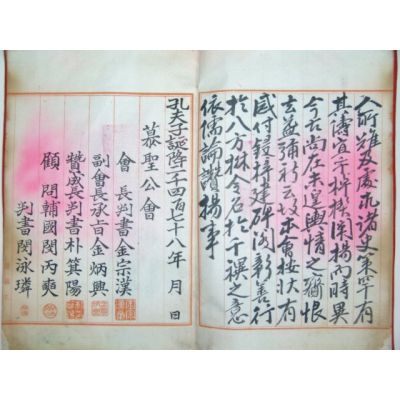 人所難及處求諸史策罕有
其儔宜乎棹楔闡揚而時異
今古尚在未遑輿情之齎恨
去益彌新云故本會按狀有
感付鋟梓建碑閣新善行
於八方楙令名於千禩之意
依儒論讚揚事
孔夫子誕降二千四百七十八年 月 日
慕聖公會
會 長判書金宗漢
副會長承旨金炳興
長判書朴箕陽
顧 問輔國閔丙奭
判書閔泳璘